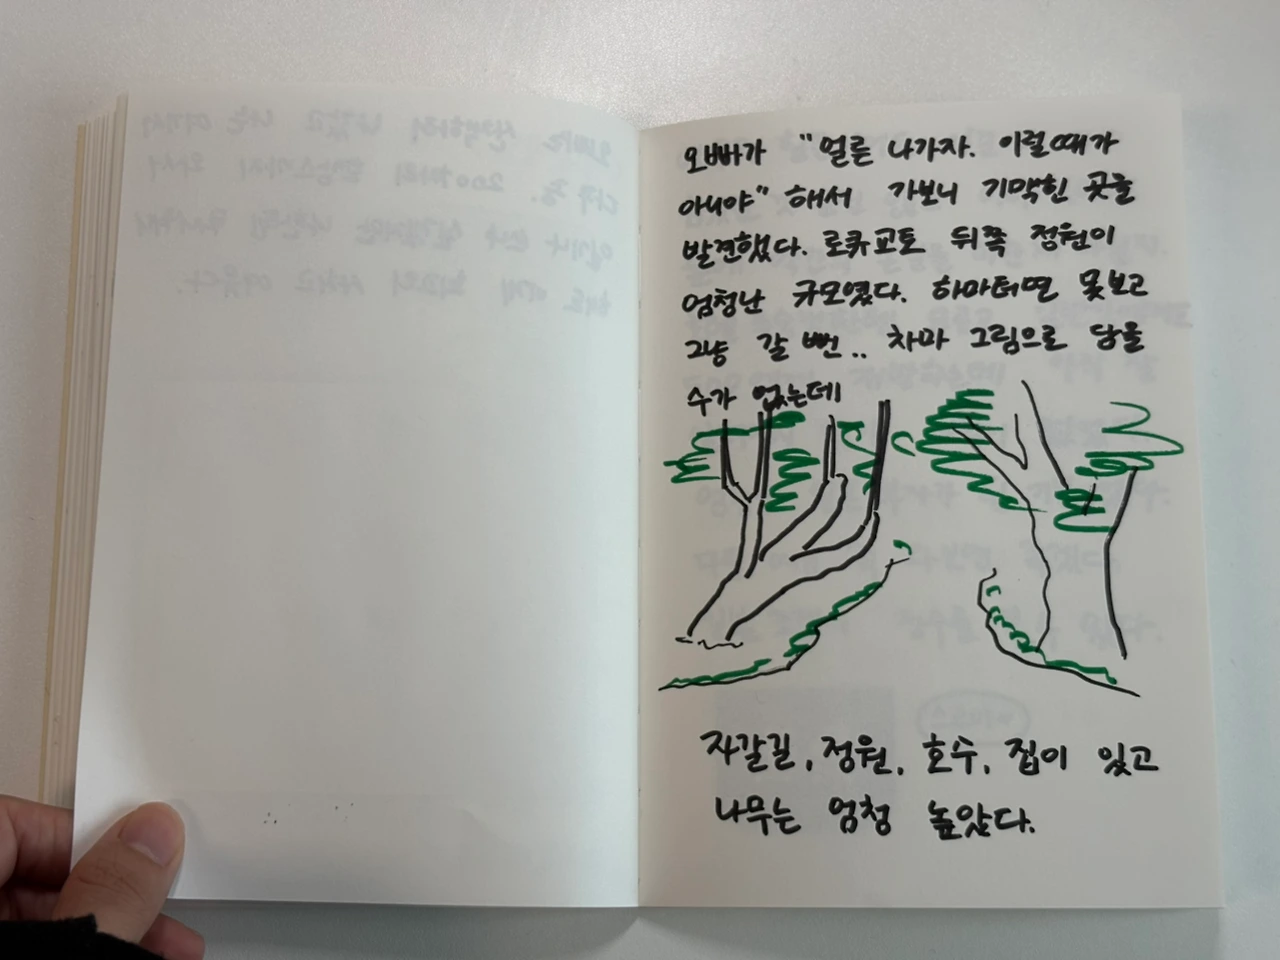 오빠가 "얼른 나가자. 이럴때가
아니야" 해서 가보니 기막힌 곳을
발견했다. 로큐교토 뒤쪽 정원이
엄청난 규모였다. 하마터면 못보고
그냥 갈 뻔.. 차마 그림으로 담을
수가 없는데
자갈길, 정원, 호수, 집이 있고
나무는 엄청 높았다.